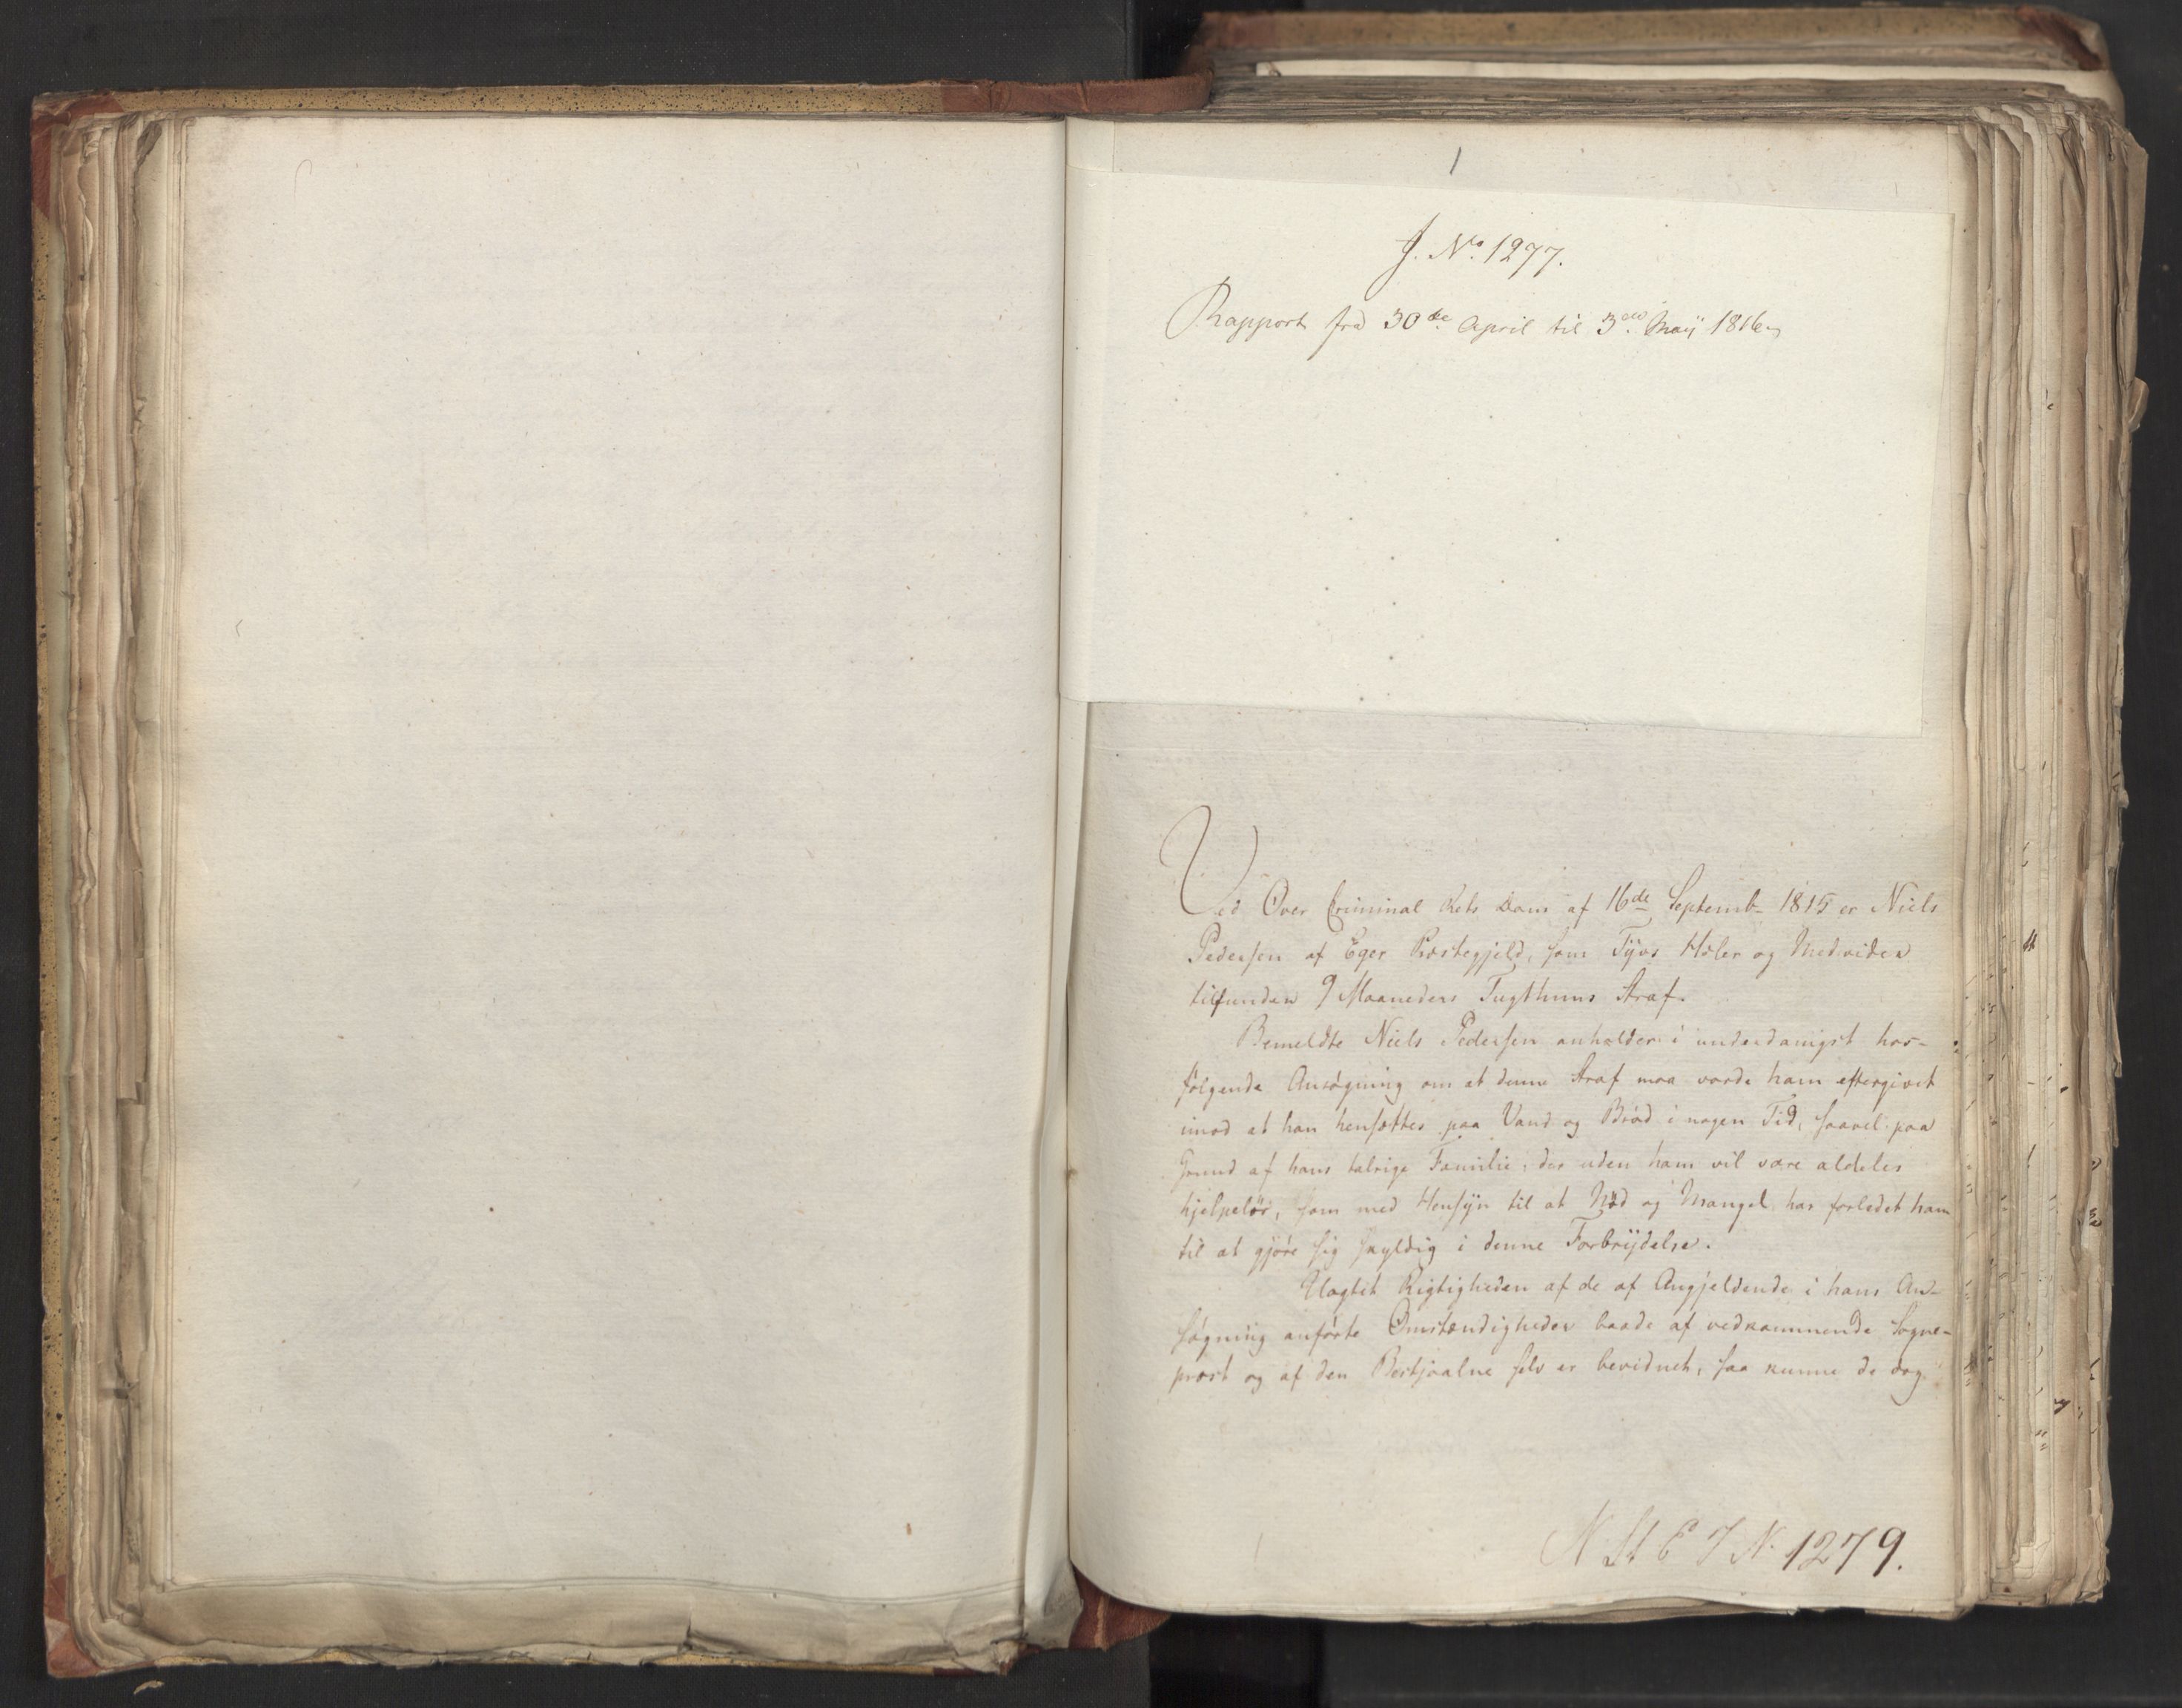 1
J. No. 1277.
Rapport fra 30de April til 3die Maij 1816
Ved Over Criminal Rets Dom af 16de Septemb- 1815 er Niels
Pedersen af Eger Præstegjeld, som Tÿvs Hæler og Medvider
tilfunden 9 Maaneders Tugthuus Straf.
Bemeldte Niels Pedersen anholder i underdanigst hos-
følgende Ansøgning om at denne Straf maa vorde ham eftergivet
imod at han hensættes paa Vand og Brød i nogen Tid, saavel paa
Grund af hans talrige Familie, der uden ham vil være aldeles
hjelpeløs, som med Hensÿn til at Nød og Mangel har forledet ham
til at gjøre sig skyldig i denne Forbrÿdelse.
Uagtet Rigtigheden af de af Angjeldende i hans An-
søgning anførte Omstændigheder baade af vedkommende Sogne-
præst og af den Bestjaalne selv er bevidnet, saa kunne de dog
N St E J N. 1279.